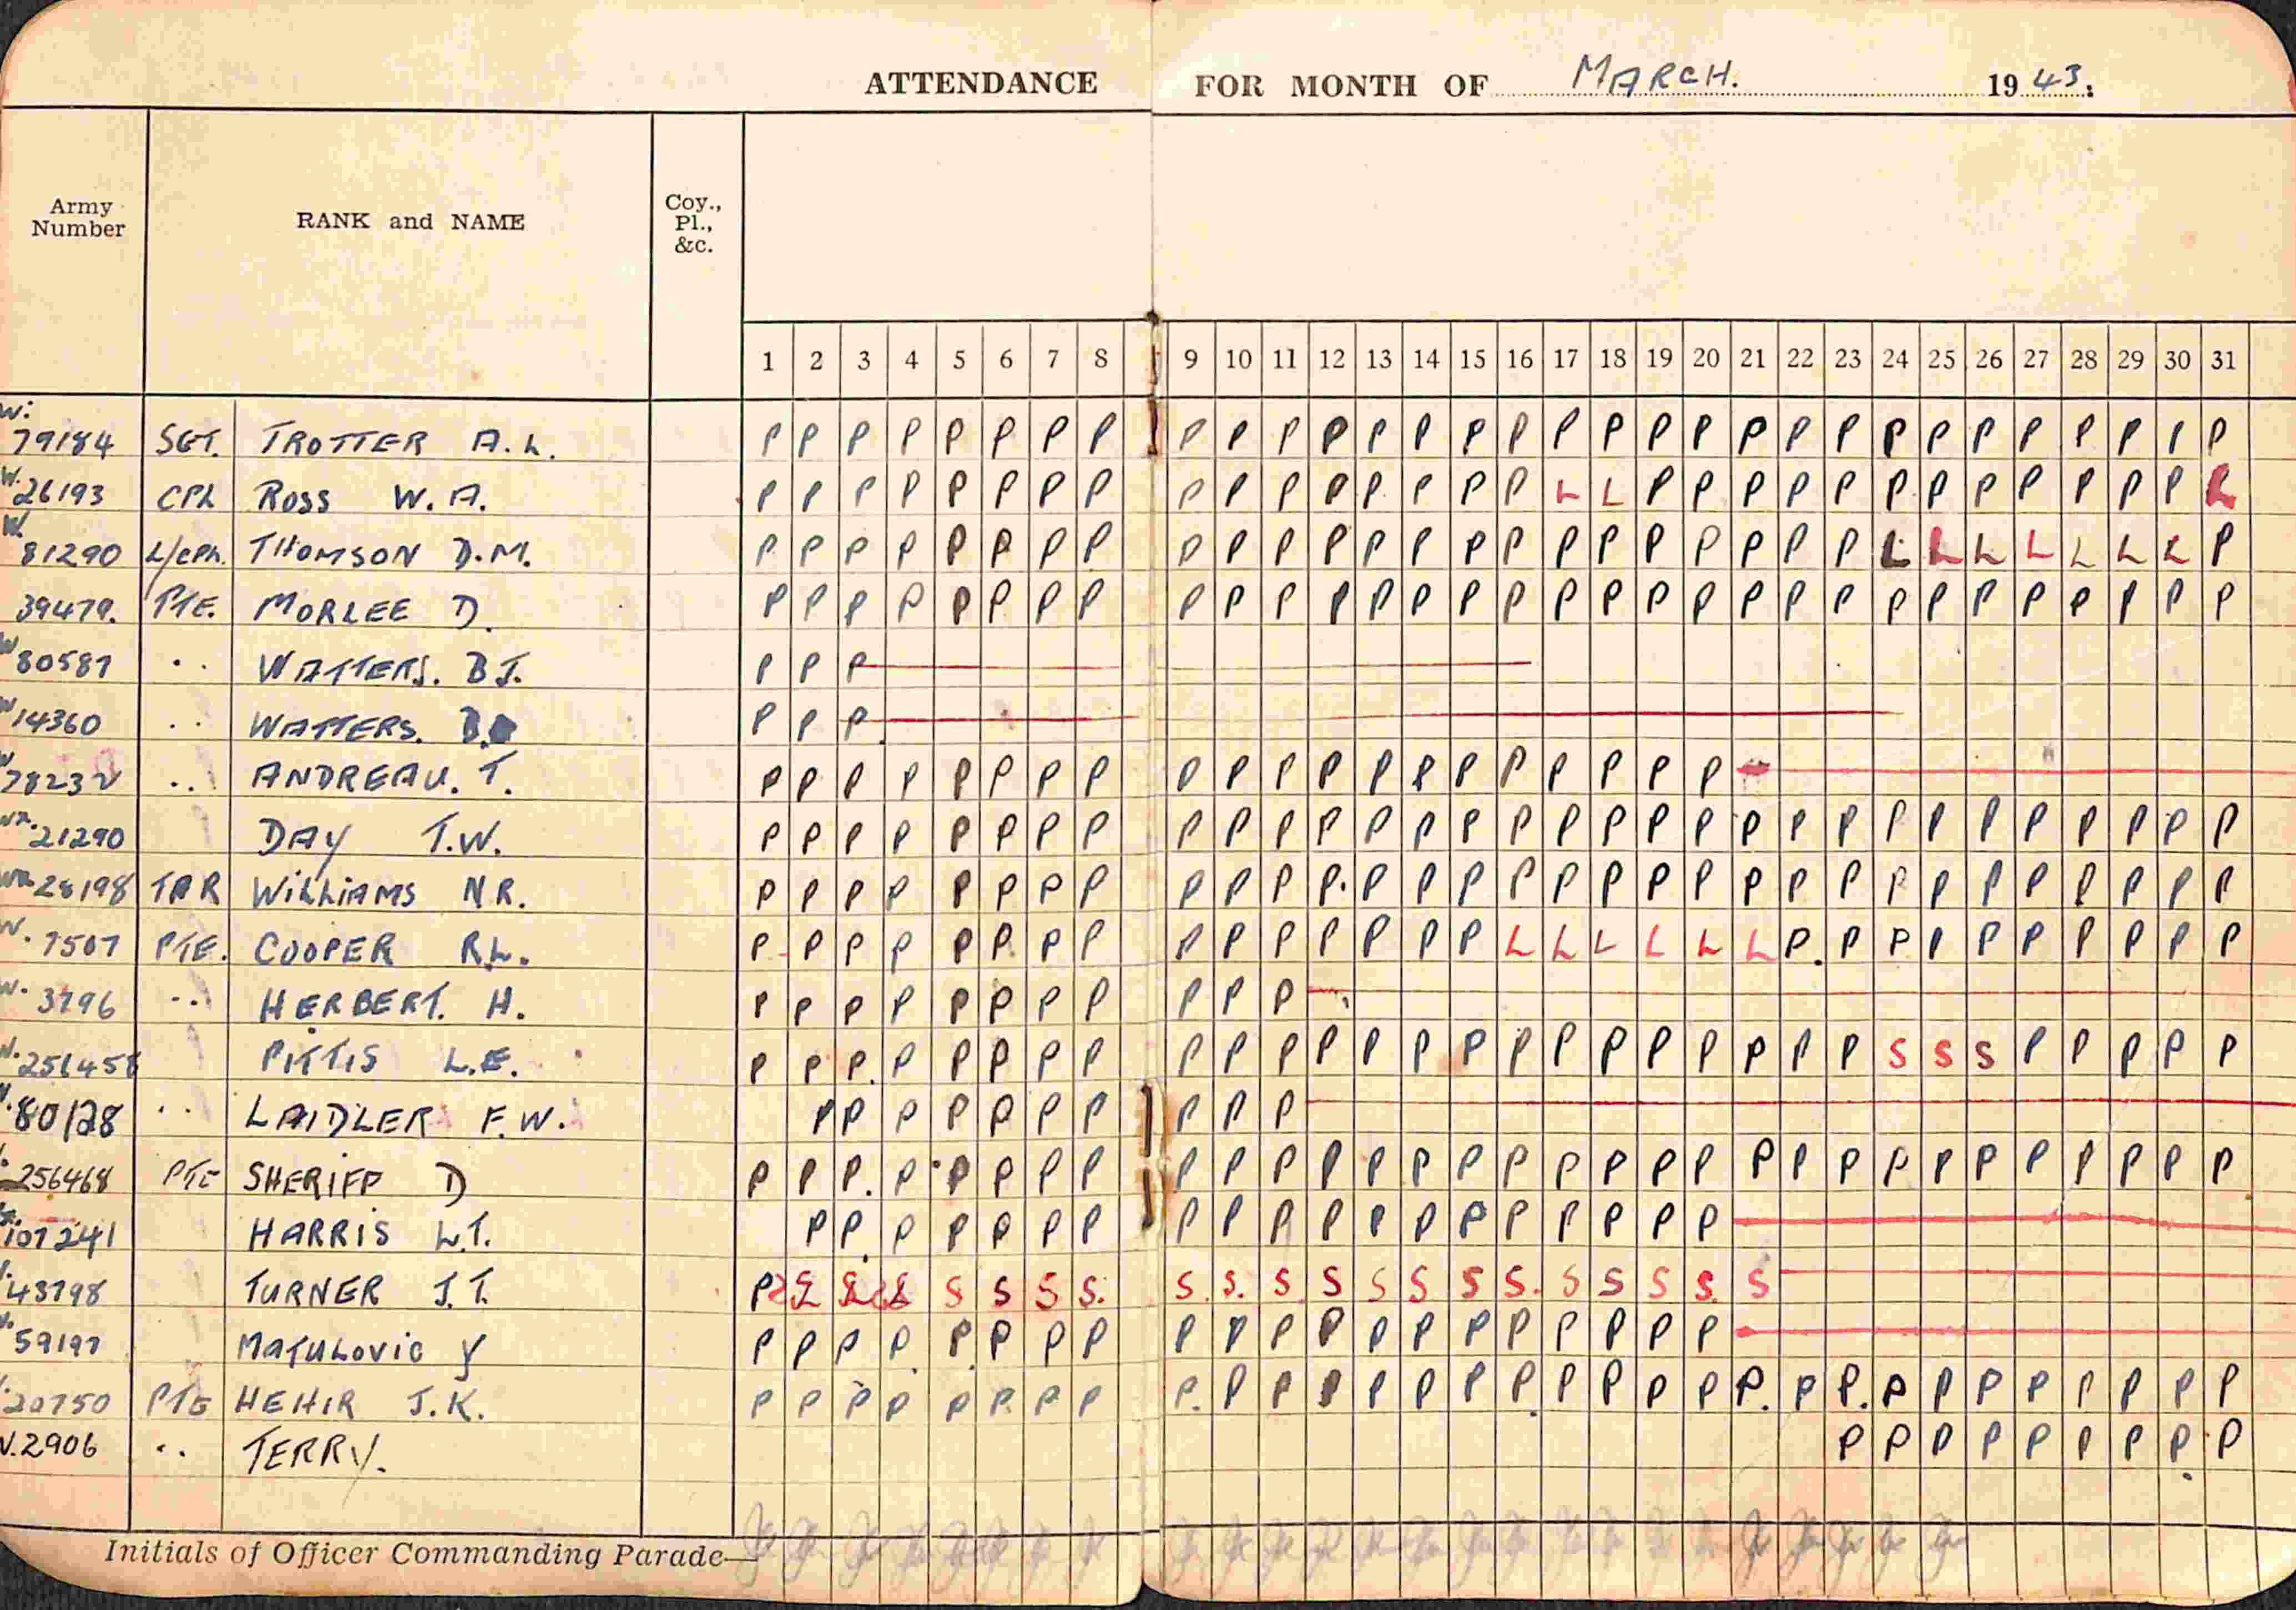 ATTENDANCE FOR MONTH OF MARCH. 1943.
Army Number RANK and NAME Coy., Pl., &c.
1 2 3 4 5 6 7 8 9 10 11 12 13 14 15 16 17 18 19 20 21 22 23 24 25 26 27 28 29 30 31
W. 79184 SGT. TROTTER A.L. P P P P P P P P P P P P P P P P P P P P P P P P P P P P P P P
W. 26193 CPL ROSS W.A. P P P P P P P P P P P P P P P P L L P P P P P P P P P P P P
W. 81290 L/CPL. THOMSON D.M. P P P P P P P P P P P P P P P P P P P P P P P L L L L L L L P
39479. PTE. MORLEE D. P P P P P P P P P P P P P P P P P P P P P P P P P P P P P P P
W 80587 .. WATTERS. B J. P P P
W 14360 .. WATTERS. D. P P P
W 78232 .. ANDREAU. T. P P P P P P P P P P P P P P P P P P P P
21290 DAY T.W. P P P P P P P P P P P P P P P P P P P P P P P P P P P P P P P
28198 TPR WILLIAMS N.R. P P P P P P P P P P P P P P P P P P P P P P P P P P P P P P P
W. 7507 PTE. COOPER R.L. P P P P P P P P P P P P P P P L L L L L L P. P P P P P P P P P
W. 3796 .. HERBERT. H. P P P P P P P P P P P
W. 251458 PITTIS L.E. P P P P P P P P P P P P P P P P P P P P P P P S S S P P P P P
80128 .. LAIDLER F.W. P P P P P P P P P P
256468 PTE SHERIFF D P P P P P P P P P P P P P P P P P P P P P P P P P P P P P P P
107241 HARRIS L.T. P P P P P P P P P P P P P P P P P P P
43798 TURNER J.T. P S S S S. S. S. S S S S S S. S S S S. S
59197 MATULOVIC Y P P P P P P P P P P P P P P P P P P P P
20750 PTE HEHIR J.K. P P P P P P P P P. P P P P P P P P P P P P. P P. P P P P P P P P
V.2906 .. TERRY. P P P P P P P P P
Initials of Officer Commanding Parade—